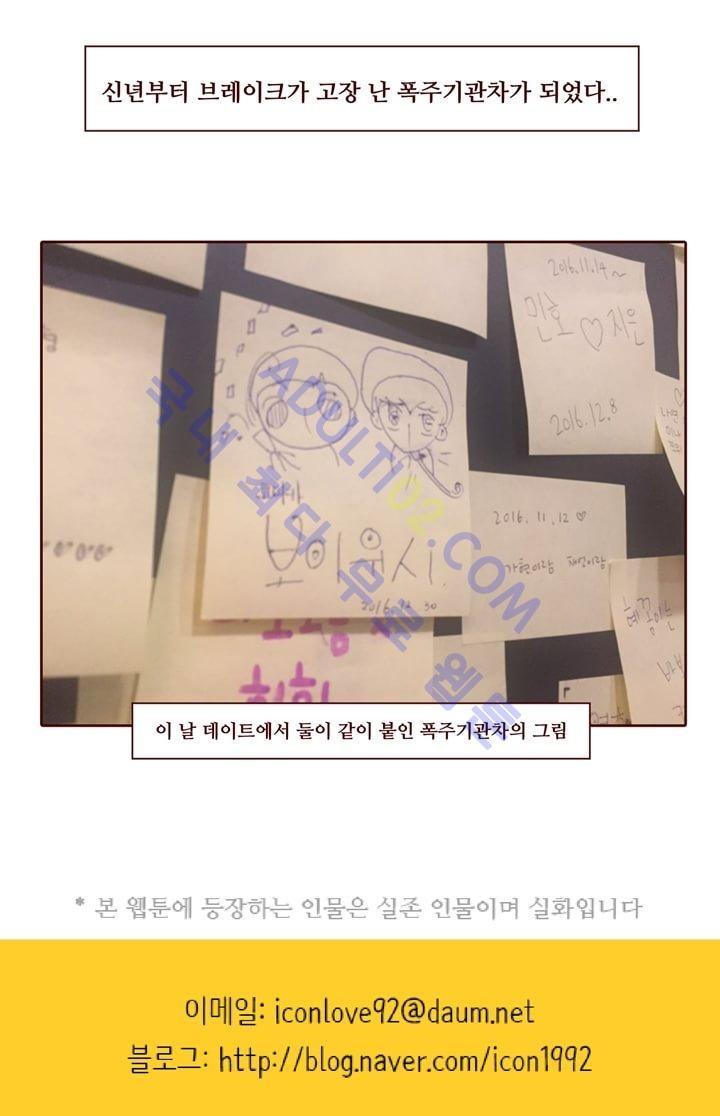 신년부터 브레이크가 고장 난 폭주기관차가 되었다..
2016.11.14~
민호 ♡ 지은
2016.12.8
보이루시
2016. 12. 30
2016. 11. 12 ♡
가현이랑 채영이랑
혜꽁이는
바보
국내 최다 무료 웹툰
ADULTI02.COM
이 날 데이트에서 둘이 같이 붙인 폭주기관차의 그림
* 본 웹툰에 등장하는 인물은 실존 인물이며 실화입니다
이메일: iconlove92@daum.net
블로그: http://blog.naver.com/icon1992